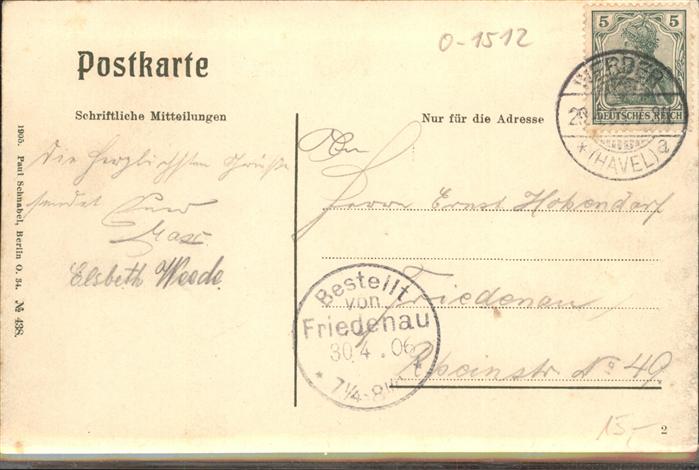 0-1512
5 5
DEUTSCHES REICH
WERDER
*(HAVEL) a
Postkarte
Schriftliche Mitteilungen
Nur für die Adresse
Die herzlichsten Grüße
sendet Euer
Max
Elsbeth Weede.
An
Herrn Ernst Hohendorf
Friedenau
Rheinstr. No 49.
Bestellt
von
Friedenau
30.4.06
* 7¼-8
1905. Paul Schnabel, Berlin O. 34. № 438.
15,-
2